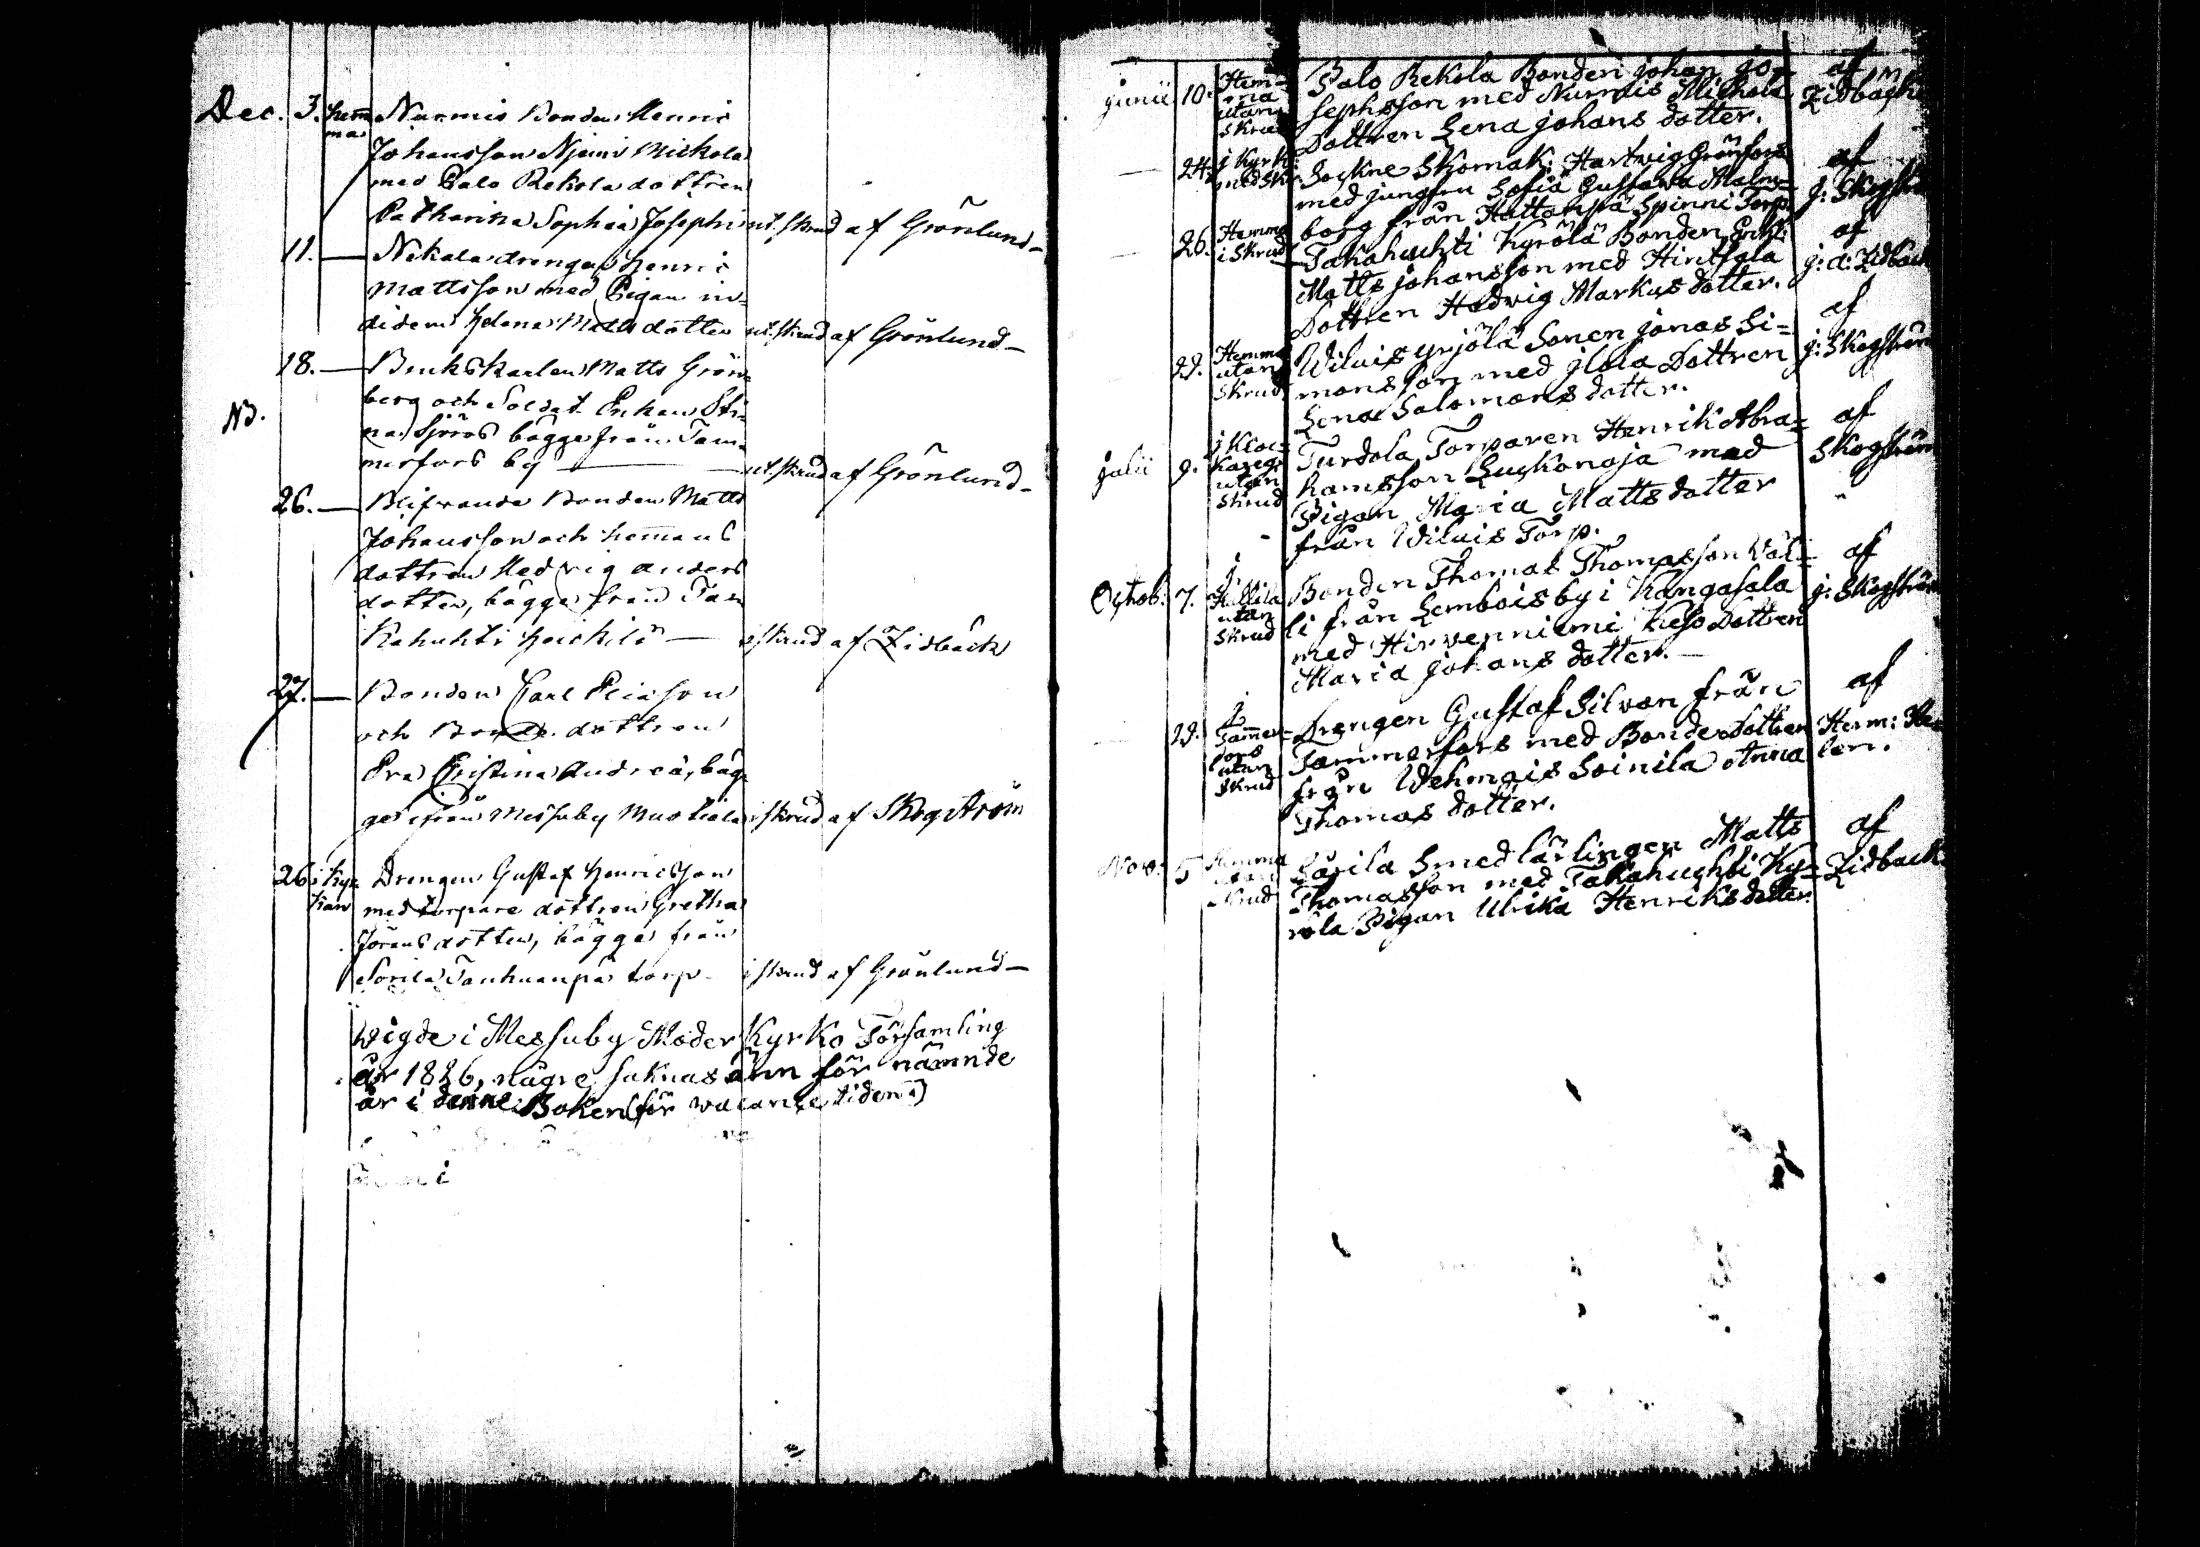 Dec. 3. hem̄ma Nurmis Bonden Henric
Johansson Njemi Mickola
med Palo Rekola dottren
Catharina Sophia Josephi ut. skrud af Grönlund
11. — Nekala drengen Henric
Mattsson med Pigan in-
didem Helena Matts dotter ut. skrud af Grönlund
18. — Bruks karlen Matts Grön-
berg och Soldat Enkan Sti-
NB.
na Sjöros bägge från Tam-
merfors by — ut. skrud af Grönlund
26. — Blifvande Bonden Matts
Johansson och hem̄ans
dottren Hedvig Anders
dotter, bägge från Ta-
kahuhti Heickilä — i skrud af Zidbäck
27. — Bonden Carl Ericsson
och Bonde dottren
Eva Christina Andreä, bäg-
ge ifrån Messuby Mustiala i skrud af Skogström
26 i Kyrkan Drengen Gustaf Henricsson
med torpare dottren Gretha
Jörans dotter, bägge från
Sorila Tanhuanpä torp. i skrud af Grönlund
Wigde i Messuby Moder Kyrko Församling
år 1826, någre saknas änn för nämnde
år i denne Boken (för vacance tiden)
Junii 10. Hemma utan skrud Palo Rekola Bonden Johan Jo- af
sephsson med Nurmis Mickola Zidbäck
Dottren Lena Johans dotter.
24. j Kyrk: med skr. Sockne Skomak: Hartwig Grönfors af
med jungfru Sofia Gustava Malm- j: Skogström
borg från Hattanpä Spinni Torp
26. Hemma i Skrud Takahuchti Kyrölä Bonden Erich af
Matts Johansson med Hirtsala j: d: Zidbäck
Dottren Hedvig Markus dotter.
29. Hemma utan Skrud Wiluis Yrjölä Sonen Jonas Si- af
monsson med Jlola Dottren j: Skogström
Lena Salomons dotter.
Julii 9. utan Skrud Turdola Torparen Henrik Abra- af
hamsson Luckonoja med Skogström
Pigan Maria Matts dotter
från Wiluis Torp.
Octob: 7. j utan Skrud Bonden Thomas Thomasson Wäl- af
li från Lembois by i Kangasala j: Skogström
med Hirvenniemi Keso Dottren
Maria Johans dotter. —
29. j Tammerfors utan Skrud Drengen Gustaf Silvan från af
Tammerfors med Bonde Dottren Herm: He-
från Wehmais Soinila Anna len.
Thomas dotter.
Nov: 5 Hemma utan Skrud Sorila Smedlärlingen Matts af
Thomasson med Takahuchti Ky- Zidbäck
röla Pigan Ulrika Henriks dotter